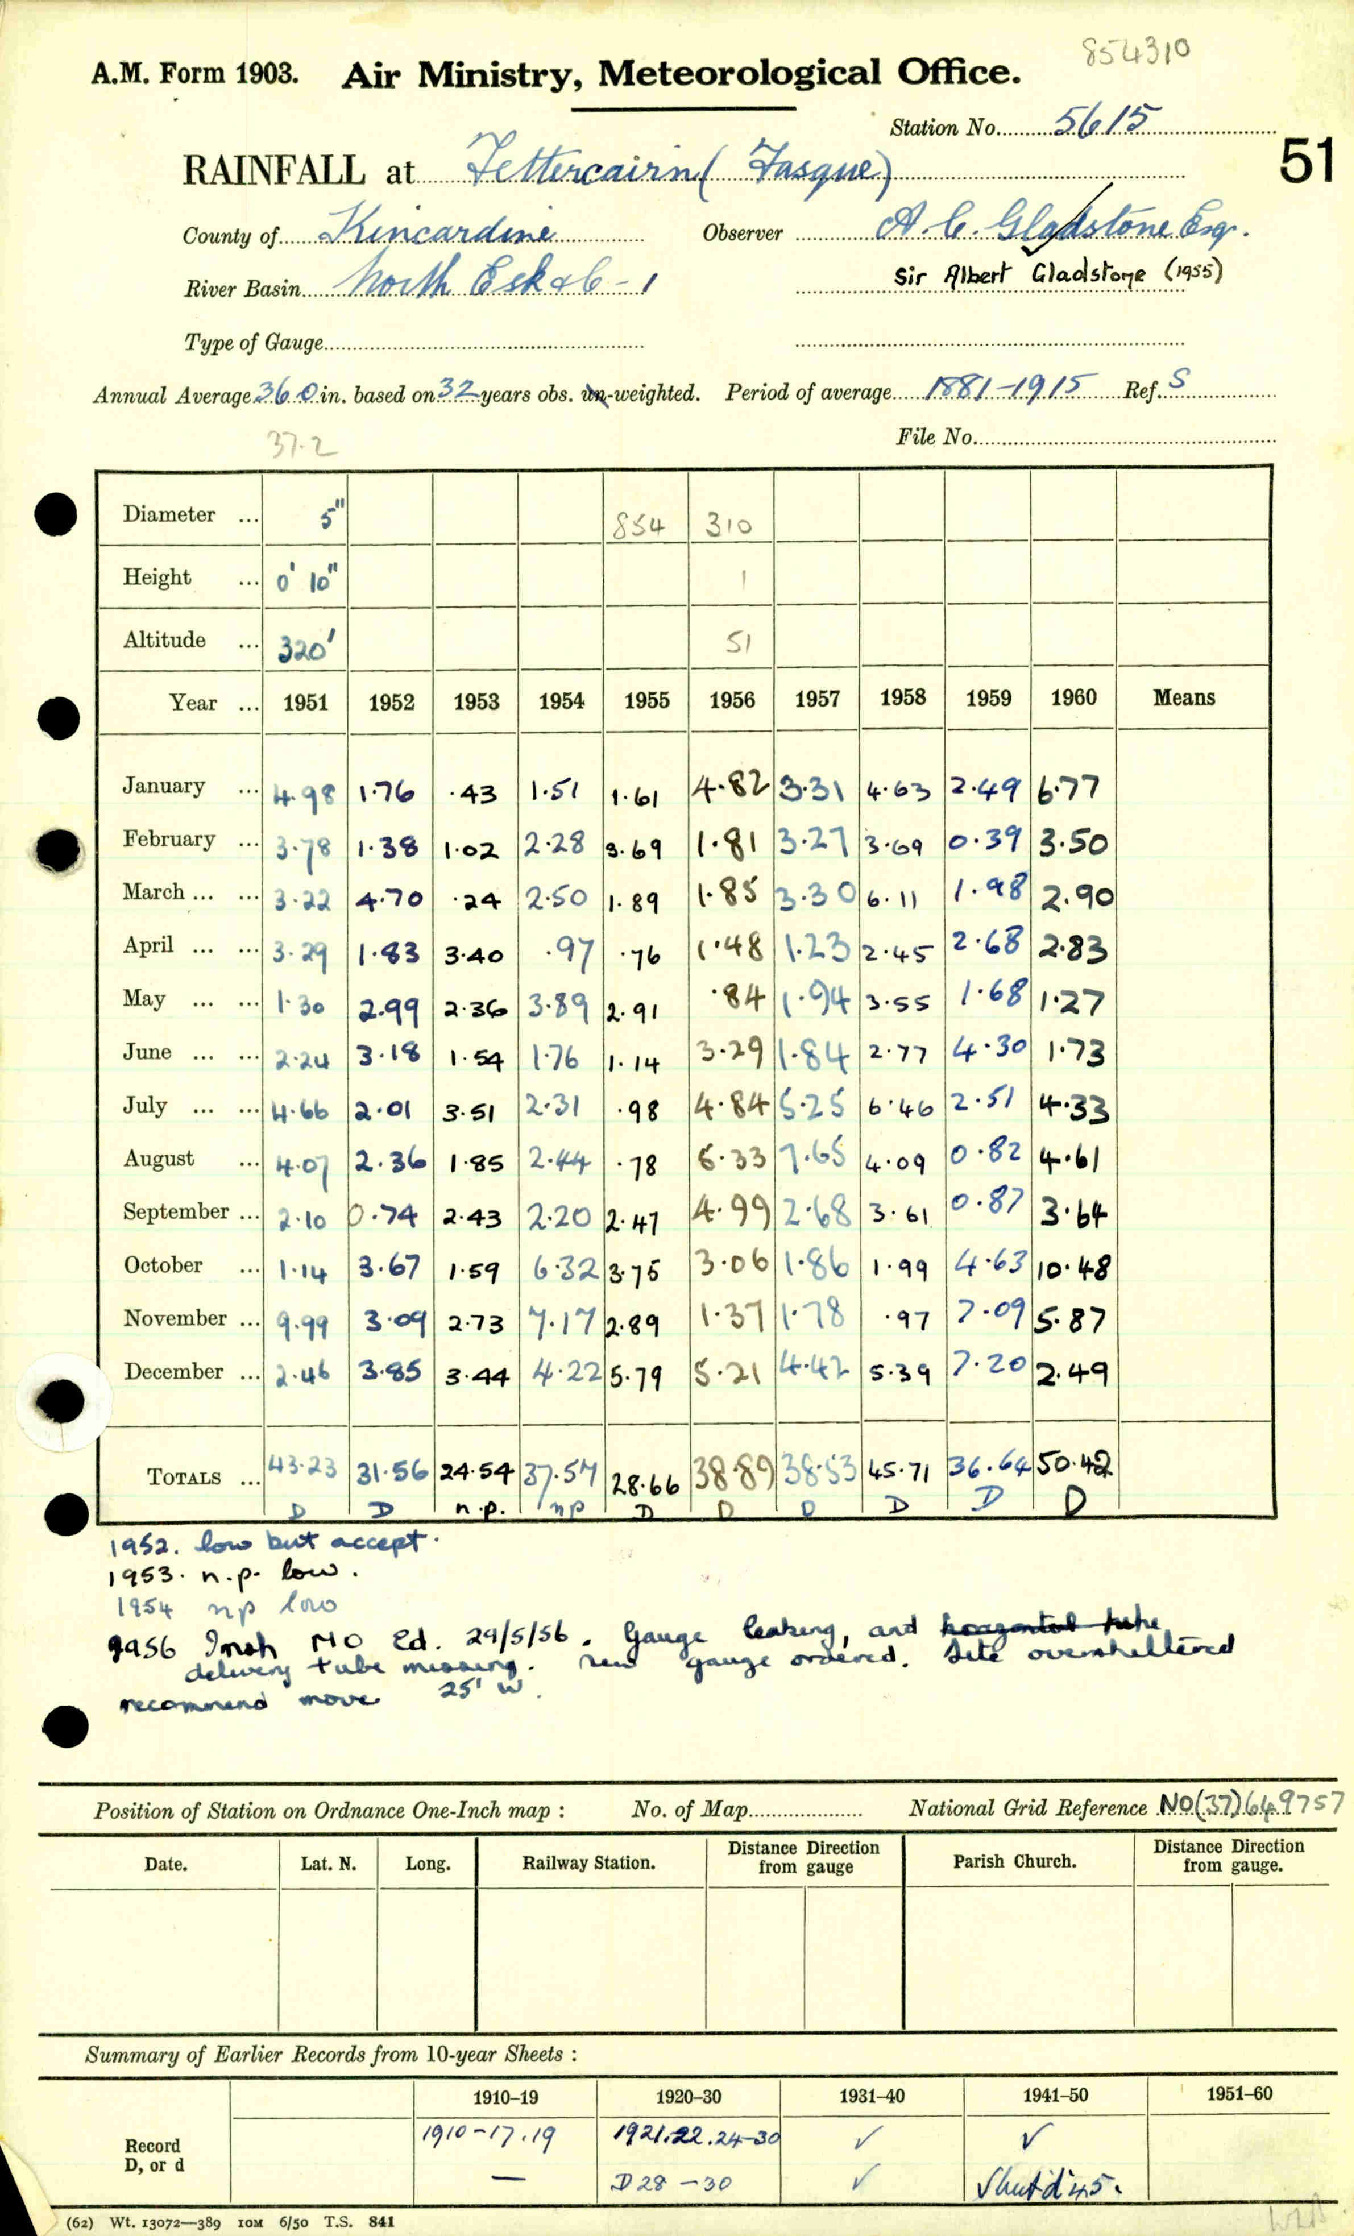 854310
A.M. Form 1903. Air Ministry, Meteorological Office.
Station No. 5615
51
RAINFALL at Fettercairn (Fasque)
County of Kincardine Observer A C. Gladstone Esqr.
River Basin North Esk &c - 1 Sir Albert Gladstone (1955)
Type of Gauge
Annual Average 36.0 in. based on 32 years obs. un-weighted. Period of average 1881-1915 Ref. S
37.2 File No.
Diameter ... 5" 854 310
Height ... 0' 10" 1
Altitude ... 320' 51
Year ... 1951 1952 1953 1954 1955 1956 1957 1958 1959 1960 Means
January ... 4.98 1.76 .43 1.51 1.61 4.82 3.31 4.63 2.49 6.77
February ... 3.78 1.38 1.02 2.28 3.69 1.81 3.27 3.69 0.39 3.50
March ... ... 3.22 4.70 .24 2.50 1.89 1.85 3.30 6.11 1.98 2.90
April ... ... 3.29 1.83 3.40 .97 .76 1.48 1.23 2.45 2.68 2.83
May ... ... 1.30 2.99 2.36 3.89 2.91 .84 1.94 3.55 1.68 1.27
June ... ... 2.24 3.18 1.54 1.76 1.14 3.29 1.84 2.77 4.30 1.73
July ... ... 4.66 2.01 3.51 2.31 .98 4.84 5.25 6.46 2.51 4.33
August ... 4.07 2.36 1.85 2.44 .78 5.33 7.65 4.09 0.82 4.61
September ... 2.10 0.74 2.43 2.20 2.47 4.99 2.68 3.61 0.87 3.64
October ... 1.14 3.67 1.59 6.32 3.75 3.06 1.86 1.99 4.63 10.48
November ... 9.99 3.09 2.73 7.17 2.89 1.37 1.78 .97 7.09 5.87
December ... 2.46 3.85 3.44 4.22 5.79 5.21 4.42 5.39 7.20 2.49
TOTALS ... 43.23 31.56 24.54 37.57 28.66 38.89 38.53 45.71 36.64 50.42
D D n.p. np D D D D D D
1952. low but accept.
1953. n.p. low.
1954 np low
1956 Insp. MO Ed. 29/5/56. Gauge leaking, and horizontal tube
delivery tube missing. New gauge ordered. Site oversheltered
recommend move 25' W.
Position of Station on Ordnance One-Inch map : No. of Map National Grid Reference NO(37)649757
Date. Lat. N. Long. Railway Station. Distance Direction from gauge Parish Church. Distance Direction from gauge.
Summary of Earlier Records from 10-year Sheets :
1910–19 1920–30 1931–40 1941–50 1951–60
Record 1910-17.19 1921.22.24-30 ✓ ✓
D, or d — D 28-30 ✓ ✓ but d 45.
(62) Wt. 13072—389 10M 6/50 T.S. 841